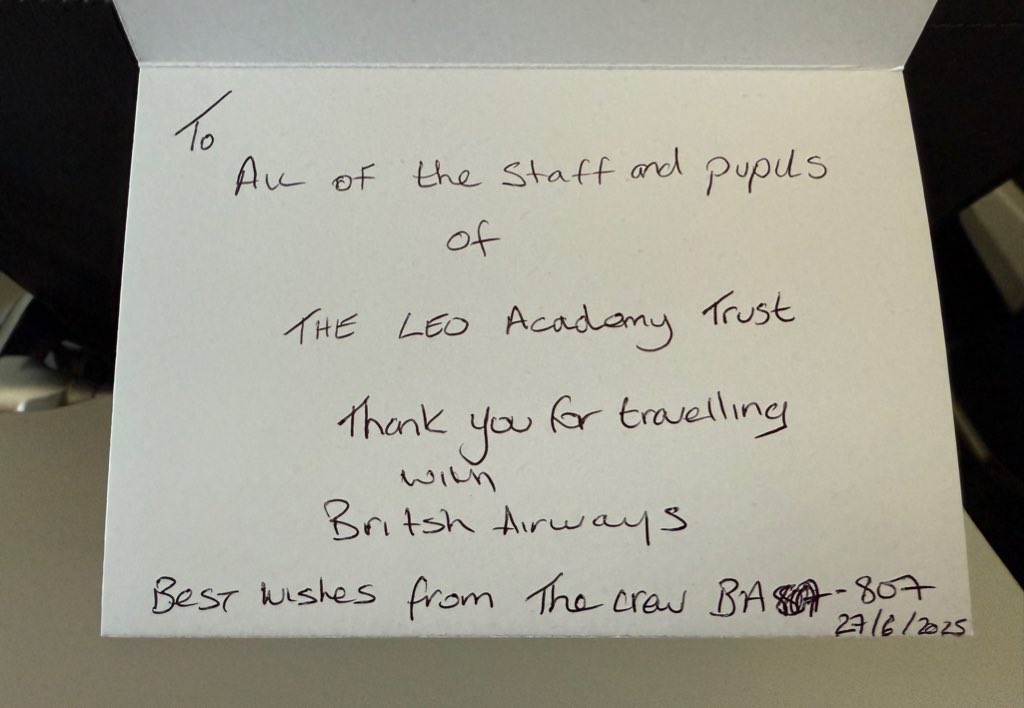 To
All of the Staff and pupils
of
THE LEO Academy Trust
Thank you for travelling
with
Britsh Airways
Best wishes from The crew BA -807
27/6/2025